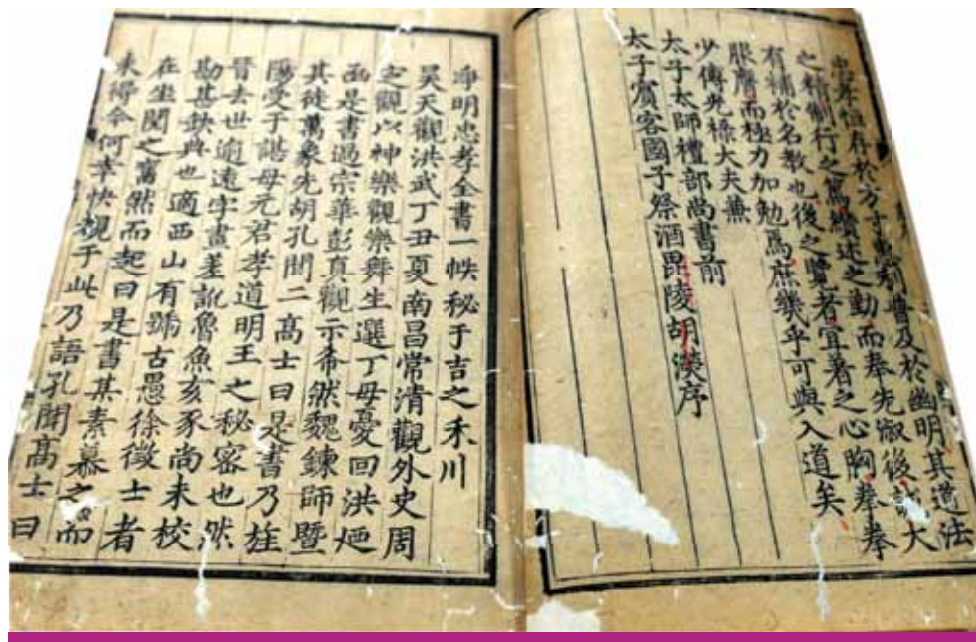 忠孝恒存於方寸惠利普及於幽明其道法
之精制行之篤纘述之勤而奉先淑後大
有補於名教也後之覽者宜著之心胸拳拳
服膺而極力加勉焉庶幾乎可與入道矣
少傅光祿大夫兼
太子太師禮部尚書前
太子賓客國子祭酒毘陵胡濙序
淨明忠孝全書一帙秘于吉之禾川
昊天觀洪武丁丑夏南昌常清觀外史周
定觀以神樂觀樂舞生選丁母憂回洪迺
函是書過宗華彭真觀示希然魏鍊師暨
其徒萬象先胡孔聞二高士曰是書乃旌
陽受于諶母元君孝道明王之秘密也然
晉去世逾遠字畫差訛魯魚亥豕尚未校
勘甚缺典也適西山有號古愚徐徵士者
在坐聞之奮然而起曰是書某素慕之而
未得今何幸快覩于此乃語孔聞高士曰